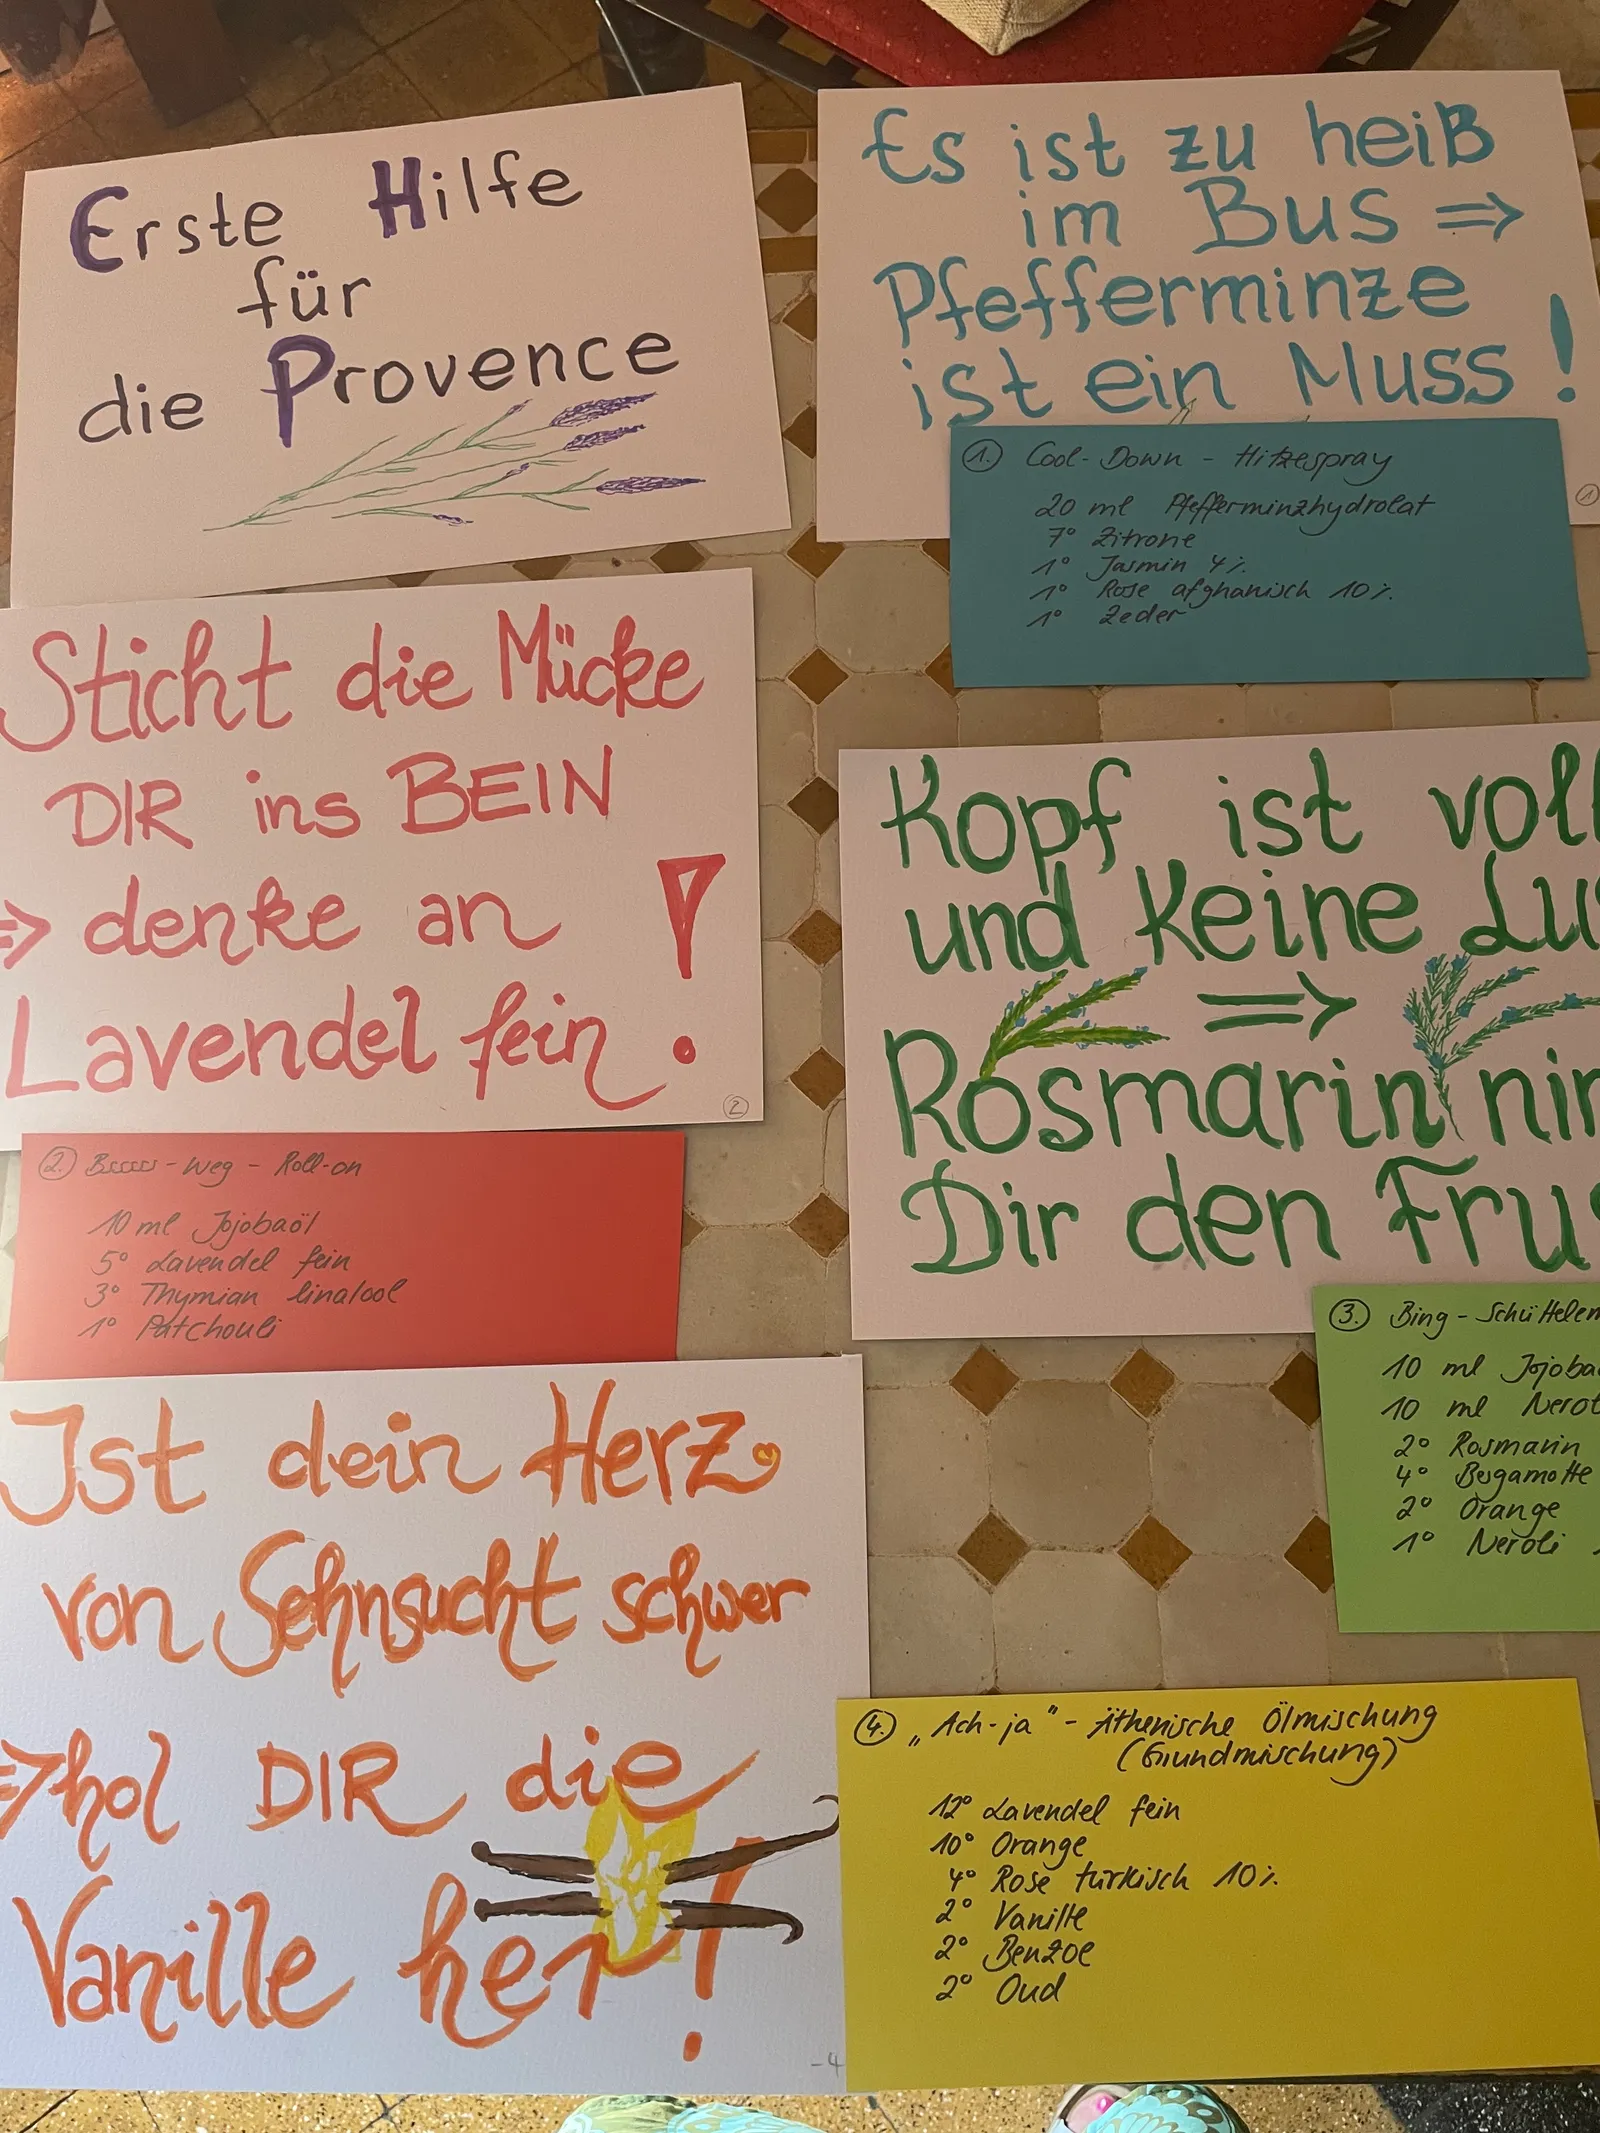 Erste Hilfe
für
die Provence
Es ist zu heiß
im Bus ⇒
Pfefferminze
ist ein Muss!
1
1. Cool-Down - Hitzespray
20 ml Pfefferminzhydrolat
7° Zitrone
1° Jasmin 4%
1° Rose afghanisch 10%
1° Zeder
Sticht die Mücke
DIR ins BEIN
⇒ denke an
Lavendel fein!
2
2. Bsssss-weg-Roll-on
10 ml Jojobaöl
5° Lavendel fein
3° Thymian linalool
1° Patchouli
Kopf ist voll
und keine Lus
⇒
Rosmarin nim
Dir den Frus
3. Bing-Schüttelem
10 ml Jojoba
10 ml Nerol
2° Rosmarin
4° Bergamotte
2° Orange
1° Neroli
Ist dein Herz
von Sehnsucht schwer
⇒ hol DIR die
Vanille her!
-4
4. „Ach-ja" - Äthenische Ölmischung
(Grundmischung)
12° Lavendel fein
10° Orange
4° Rose türkisch 10%
2° Vanille
2° Benzoe
2° Oud